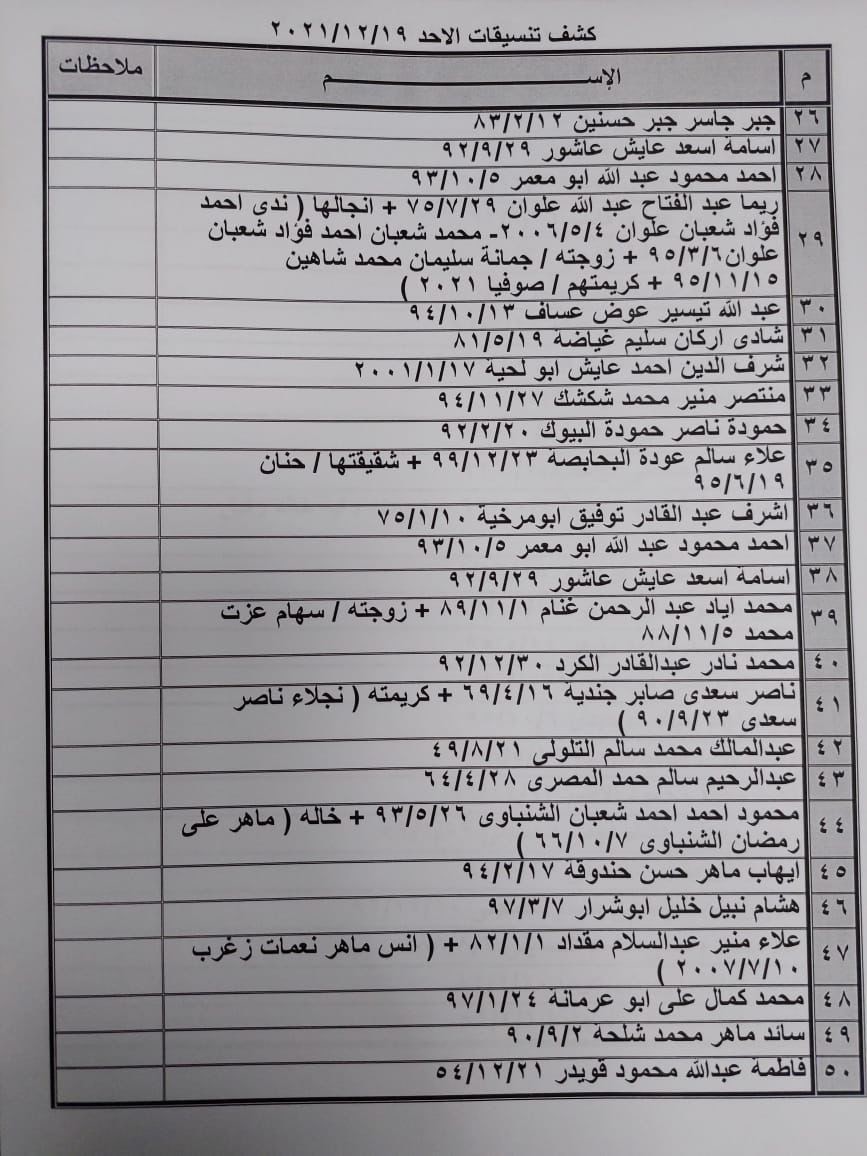 كشف تنسيقات الاحد ٢٠٢١/١٢/١٩
م الإســـــــــــــم ملاحظات
٢٦ جبر جاسر جبر حسنين ٨٣/٢/١٢
٢٧ اسامة اسعد عايش عاشور ٩٢/٩/٢٩
٢٨ احمد محمود عبد الله ابو معمر ٩٣/١٠/٥
٢٩ ريما عبد الفتاح عبد الله علوان ٧٥/٧/٢٩ + انجالها ( ندى احمد
فؤاد شعبان علوان ٢٠٠٦/٥/٤- محمد شعبان احمد فؤاد شعبان
علوان٩٥/٣/٦ + زوجته / جمانة سليمان محمد شاهين
٩٥/١١/١٥ + كريمتهم / صوفيا ٢٠٢١ )
٣٠ عبد الله تيسير عوض عساف ٩٤/١٠/١٣
٣١ شادى اركان سليم غياضة ٨١/٥/١٩
٣٢ شرف الدين احمد عايش ابو لحية ٢٠٠١/١/١٧
٣٣ منتصر منير محمد شكشك ٩٤/١١/٢٧
٣٤ حمودة ناصر حمودة البيوك ٩٢/٢/٢٠
٣٥ علاء سالم عودة البحابصة ٩٩/١٢/٢٣ + شقيقتها / حنان
٩٥/٦/١٩
٣٦ اشرف عبد القادر توفيق ابومرخية ٧٥/١/١٠
٣٧ احمد محمود عبد الله ابو معمر ٩٣/١٠/٥
٣٨ اسامة اسعد عايش عاشور ٩٢/٩/٢٩
٣٩ محمد اياد عبد الرحمن غنام ٨٩/١١/١ + زوجته / سهام عزت
محمد ٨٨/١١/٥
٤٠ محمد نادر عبدالقادر الكرد ٩٢/١٢/٣٠
٤١ ناصر سعدى صابر جندية ٦٩/٤/١٦ + كريمته ( نجلاء ناصر
سعدى ٩٠/٩/٢٣ )
٤٢ عبدالمالك محمد سالم التلولى ٤٩/٨/٢١
٤٣ عبدالرحيم سالم حمد المصرى ٦٤/٤/٢٨
٤٤ محمود احمد احمد شعبان الشنباوى ٩٣/٥/٢٦ + خاله ( ماهر على
رمضان الشنباوى ٦٦/١٠/٧ )
٤٥ ايهاب ماهر حسن حندوقة ٩٤/٢/١٧
٤٦ هشام نبيل خليل ابوشرار ٩٧/٣/٧
٤٧ علاء منير عبدالسلام مقداد ٨٢/١/١ + ( انس ماهر نعمات زغرب
٢٠٠٧/٧/١٠ )
٤٨ محمد كمال على ابو عرمانة ٩٧/١/٢٤
٤٩ سائد ماهر محمد شلحة ٩٠/٩/٢
٥٠ فاطمة عبدالله محمود قويدر ٥٤/١٢/٢١